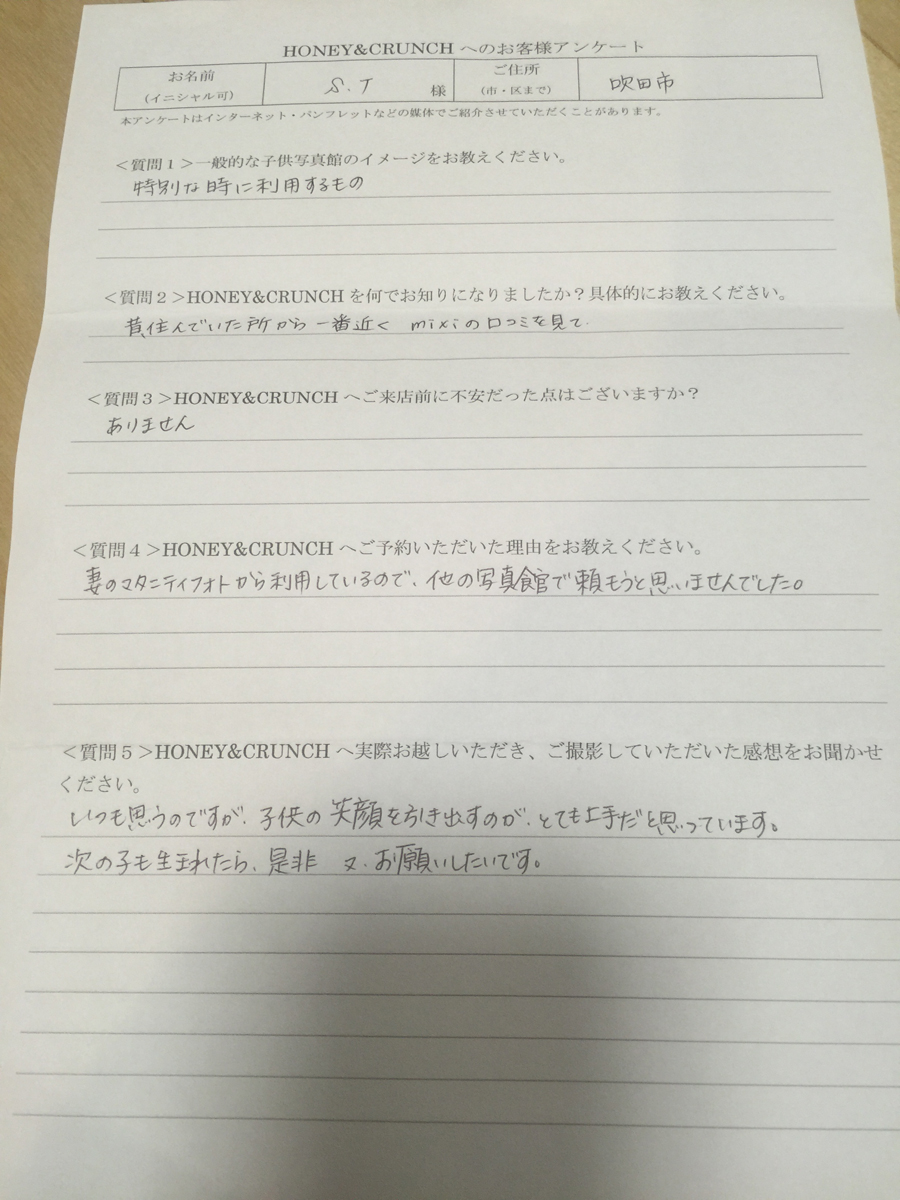 HONEY&CRUNCH へのお客様アンケート
お名前 S.T 様 ご住所 吹田市
(イニシャル可) (市・区まで)
本アンケートはインターネット・パンフレットなどの媒体でご紹介させていただくことがあります。
＜質問１＞一般的な子供写真館のイメージをお教えください。
特別な時に利用するもの
＜質問２＞HONEY&CRUNCH を何でお知りになりましたか？具体的にお教えください。
昔住んでいた所から一番近く mixiの口コミを見て.
＜質問３＞HONEY&CRUNCH へご来店前に不安だった点はございますか？
ありません
＜質問４＞HONEY&CRUNCH へご予約いただいた理由をお教えください。
妻のマタニティフォトから利用しているので、他の写真館で頼もうと思いませんでした。
＜質問５＞HONEY&CRUNCH へ実際お越しいただき、ご撮影していただいた感想をお聞かせ
ください。
いつも思うのですが、子供の笑顔を引き出すのが、とても上手だと思っています。
次の子も生まれたら、是非 又、お願いしたいです。